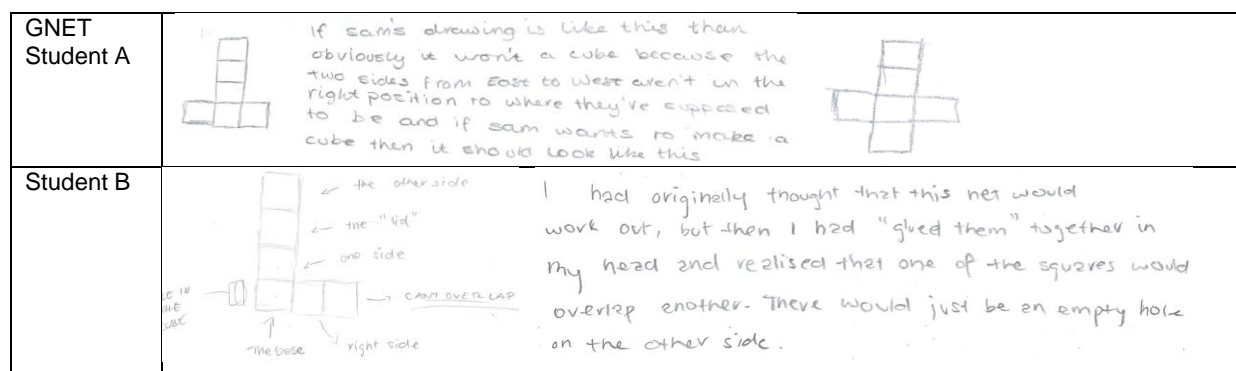 GNET
Student A
If sam's drawing is like this than
obviously it won't a cube because the
two sides from East to West aren't in the
right position to where they've supposed
to be and if sam wants to make a
cube then it should look like this
Student B
the other side
the "lid"
one side
CANT OVERLAP
The base
right side
I had originally thought that this net would
work out, but then I had "glued them" together in
my head and realised that one of the squares would
overlap another. There would just be an empty hole
on the other side.